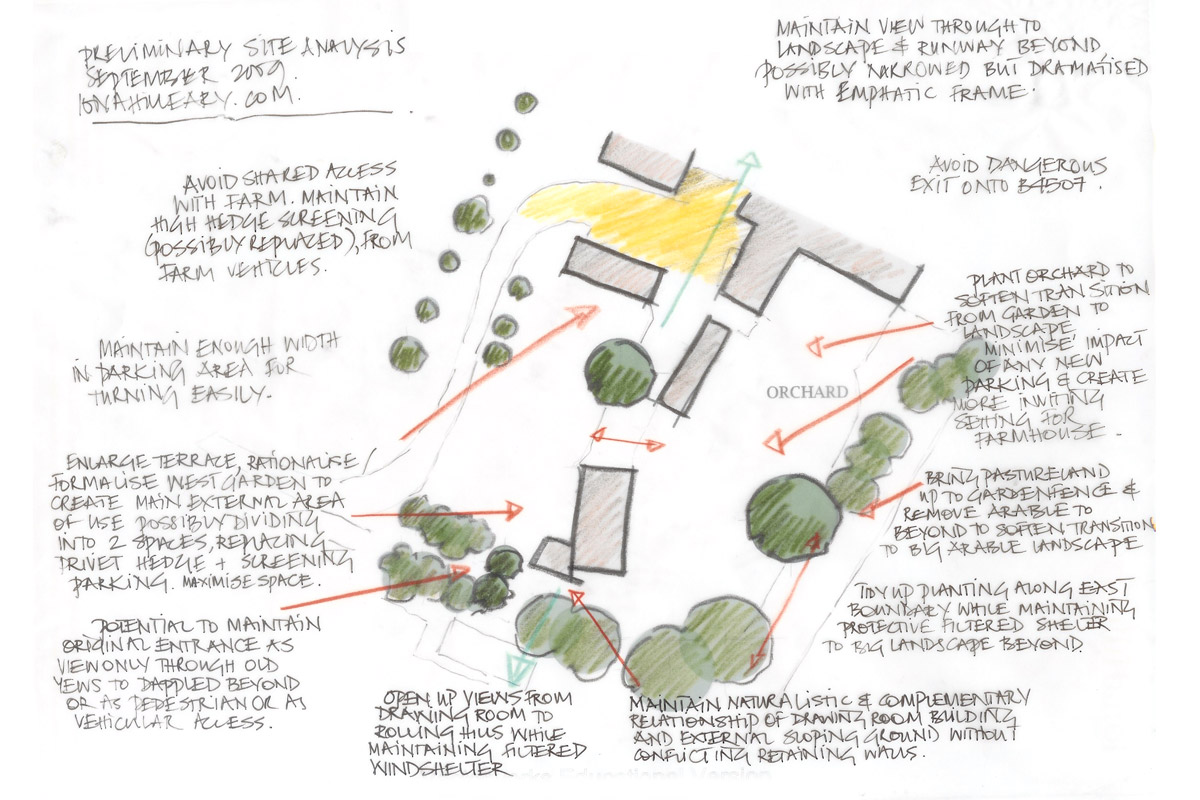 PRELIMINARY SITE ANALYSIS
SEPTEMBER 2009.
IONAHILLEARY.COM.
MAINTAIN VIEW THROUGH TO
LANDSCAPE & RUNWAY BEYOND,
POSSIBLY NARROWED BUT DRAMATISED
WITH EMPHATIC FRAME.
AVOID SHARED ACCESS
WITH FARM. MAINTAIN
HIGH HEDGE SCREENING
(POSSIBLY REPLACED), FROM
FARM VEHICLES.
AVOID DANGEROUS
EXIT ONTO B4507.
MAINTAIN ENOUGH WIDTH
IN PARKING AREA FOR
TURNING EASILY.
PLANT ORCHARD TO
SOFTEN TRANSITION
FROM GARDEN TO
LANDSCAPE
MINIMISE IMPACT
OF ANY NEW
PARKING & CREATE
MORE INVITING
SETTING FOR
FARMHOUSE.
ORCHARD
ENLARGE TERRACE, RATIONALISE
FORMALISE WEST GARDEN TO
CREATE MAIN EXTERNAL AREA
OF USE POSSIBLY DIVIDING
INTO 2 SPACES, REPLACING
PRIVET HEDGE + SCREENING
PARKING. MAXIMISE SPACE.
BRING PASTURELAND
UP TO GARDEN FENCE &
REMOVE ARABLE TO
BEYOND TO SOFTEN TRANSITION
TO BIG ARABLE LANDSCAPE
TIDY UP PLANTING ALONG EAST
BOUNDARY WHILE MAINTAINING
PROTECTIVE FILTERED SHELTER
TO BIG LANDSCAPE BEYOND.
POTENTIAL TO MAINTAIN
ORIGINAL ENTRANCE AS
VIEW ONLY THROUGH OLD
YEWS TO DAPPLED BEYOND
OR AS PEDESTRIAN OR AS
VEHICULAR ACCESS.
OPEN UP VIEWS FROM
DRAWING ROOM TO
ROLLING HILLS WHILE
MAINTAINING FILTERED
WINDSHELTER
MAINTAIN NATURALISTIC & COMPLEMENTARY
RELATIONSHIP OF DRAWING ROOM BUILDING
AND EXTERNAL SLOPING GROUND WITHOUT
CONFLICTING RETAINING WALLS.
Educational Version